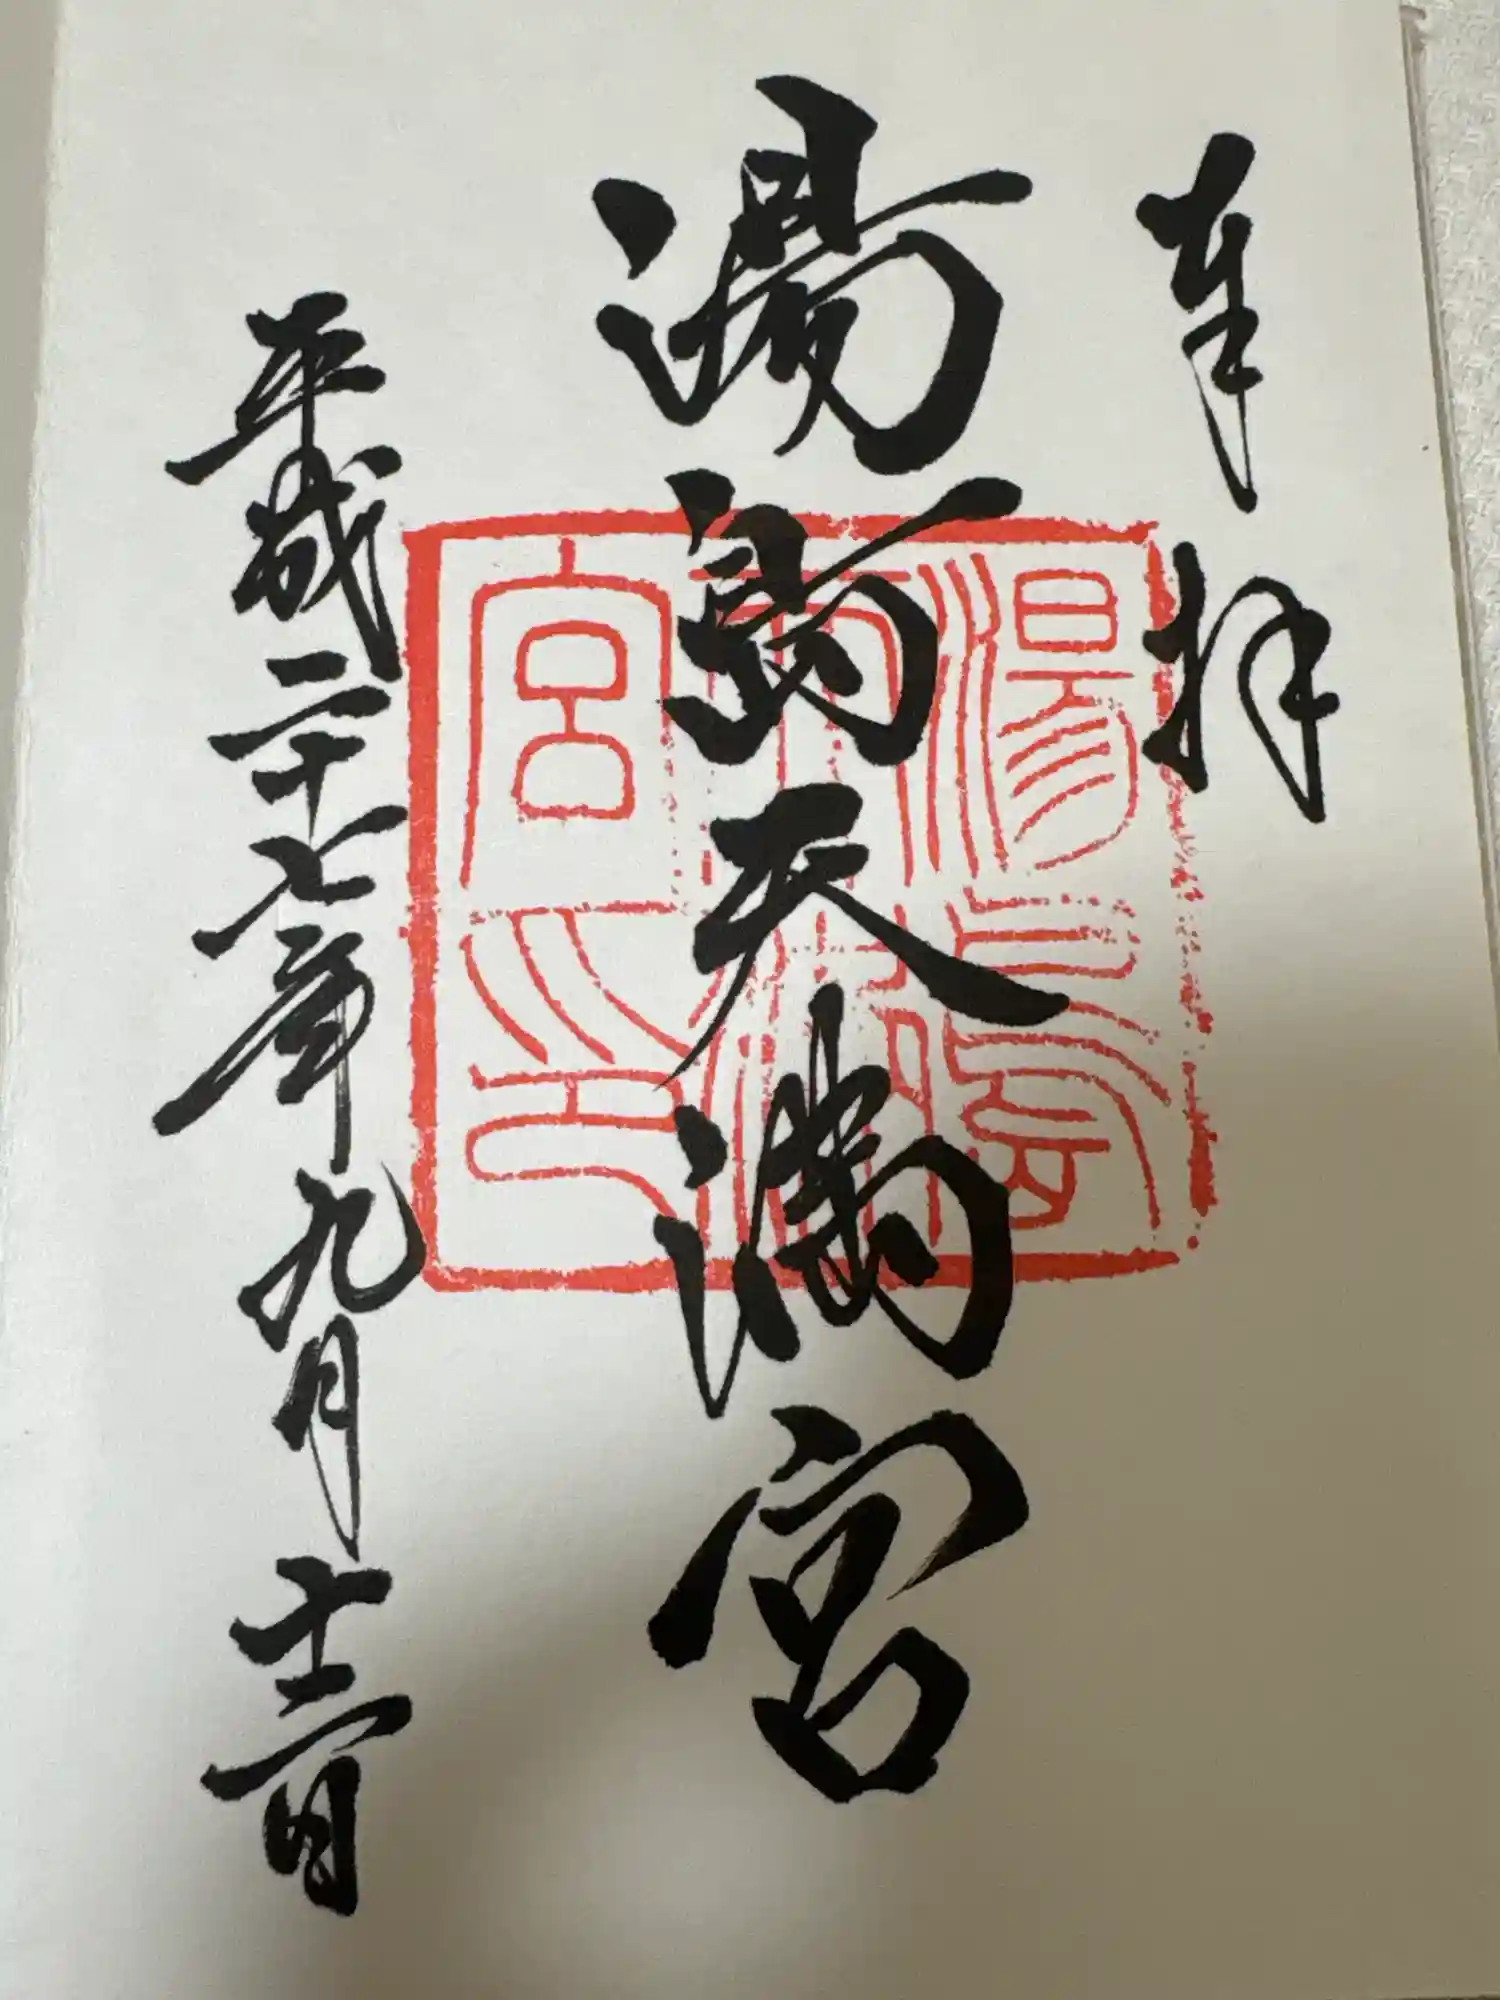 奉拝
湯島天満宮
平成二十七年九月十二日
湯島
天神
宮印